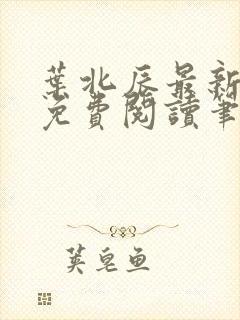 葉北辰最新
免費閱讀筆
英皂魚